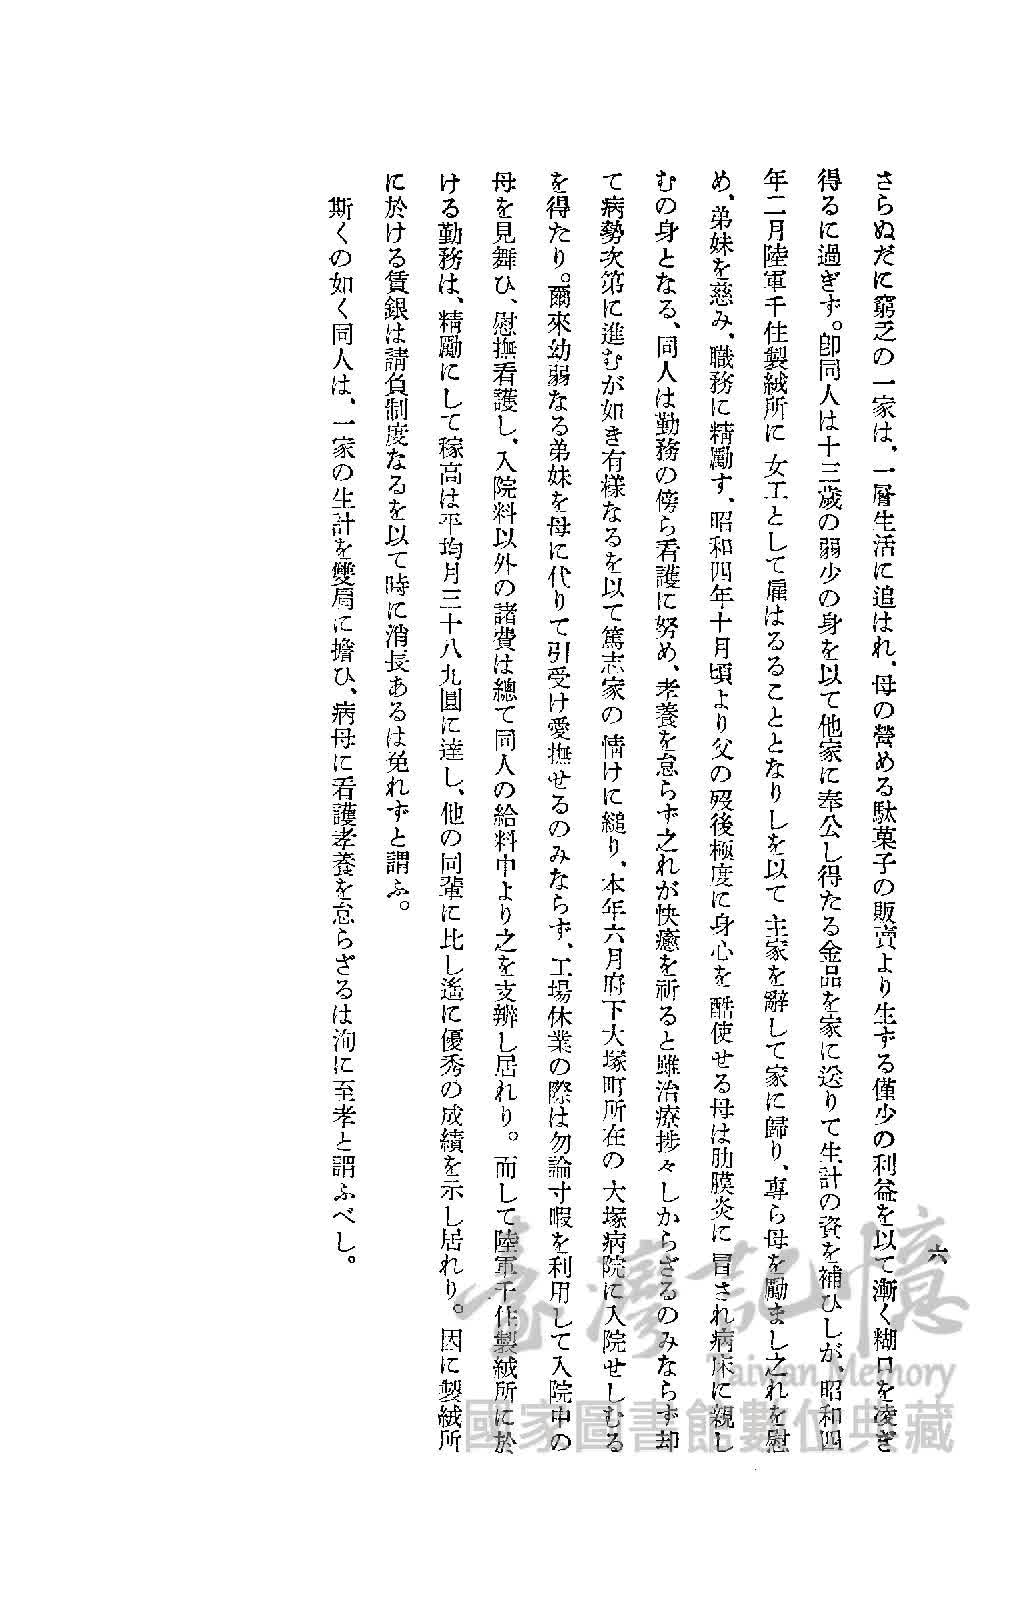 六
さらぬだに窮乏の一家は、一層生活に追はれ、母の營める駄菓子の販賣より生ずる僅少の利益を以て漸く糊口を凌ぎ
得るに過ぎず。卽同人は十三歲の弱少の身を以て他家に奉公し得たる金品を家に送りて生計の資を補ひしが、昭和四
年二月陸軍千住製絨所に女工として雇はるることとなりしを以て主家を辭して家に歸り、專ら母を勵まし之れを慰
め、弟妹を慈み、職務に精勵す、昭和四年十月頃より父の歿後極度に身心を酷使せる母は肋膜炎に冒され病床に親し
むの身となる、同人は勤務の傍ら看護に努め、孝養を怠らず之れが快癒を祈ると雖治療捗々しからざるのみならず却
て病勢次第に進むが如き有樣なるを以て篤志家の情けに縋り、本年六月府下大塚町所在の大塚病院に入院せしむる
を得たり。爾來幼弱なる弟妹を母に代りて引受け愛撫せるのみならず、工場休業の際は勿論寸暇を利用して入院中の
母を見舞ひ、慰撫看護し、入院料以外の諸費は總て同人の給料中より之を支辨し居れり。而して陸軍千住製絨所に於
ける勤務は、精勵にして稼高は平均月三十八九圓に達し、他の同輩に比し遙に優秀の成績を示し居れり。因に製絨所
に於ける賃銀は請負制度なるを以て時に消長あるは免れずと謂ふ。
斯くの如く同人は、一家の生計を雙肩に擔ひ、病母に看護孝養を怠らざるは洵に至孝と謂ふべし。
臺灣記憶
Taiwan Memory
國家圖書館數位典藏